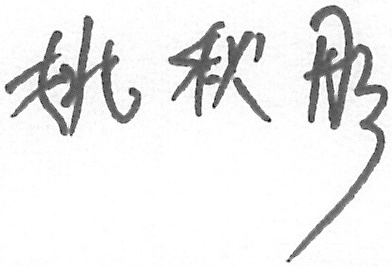 姚秋彤